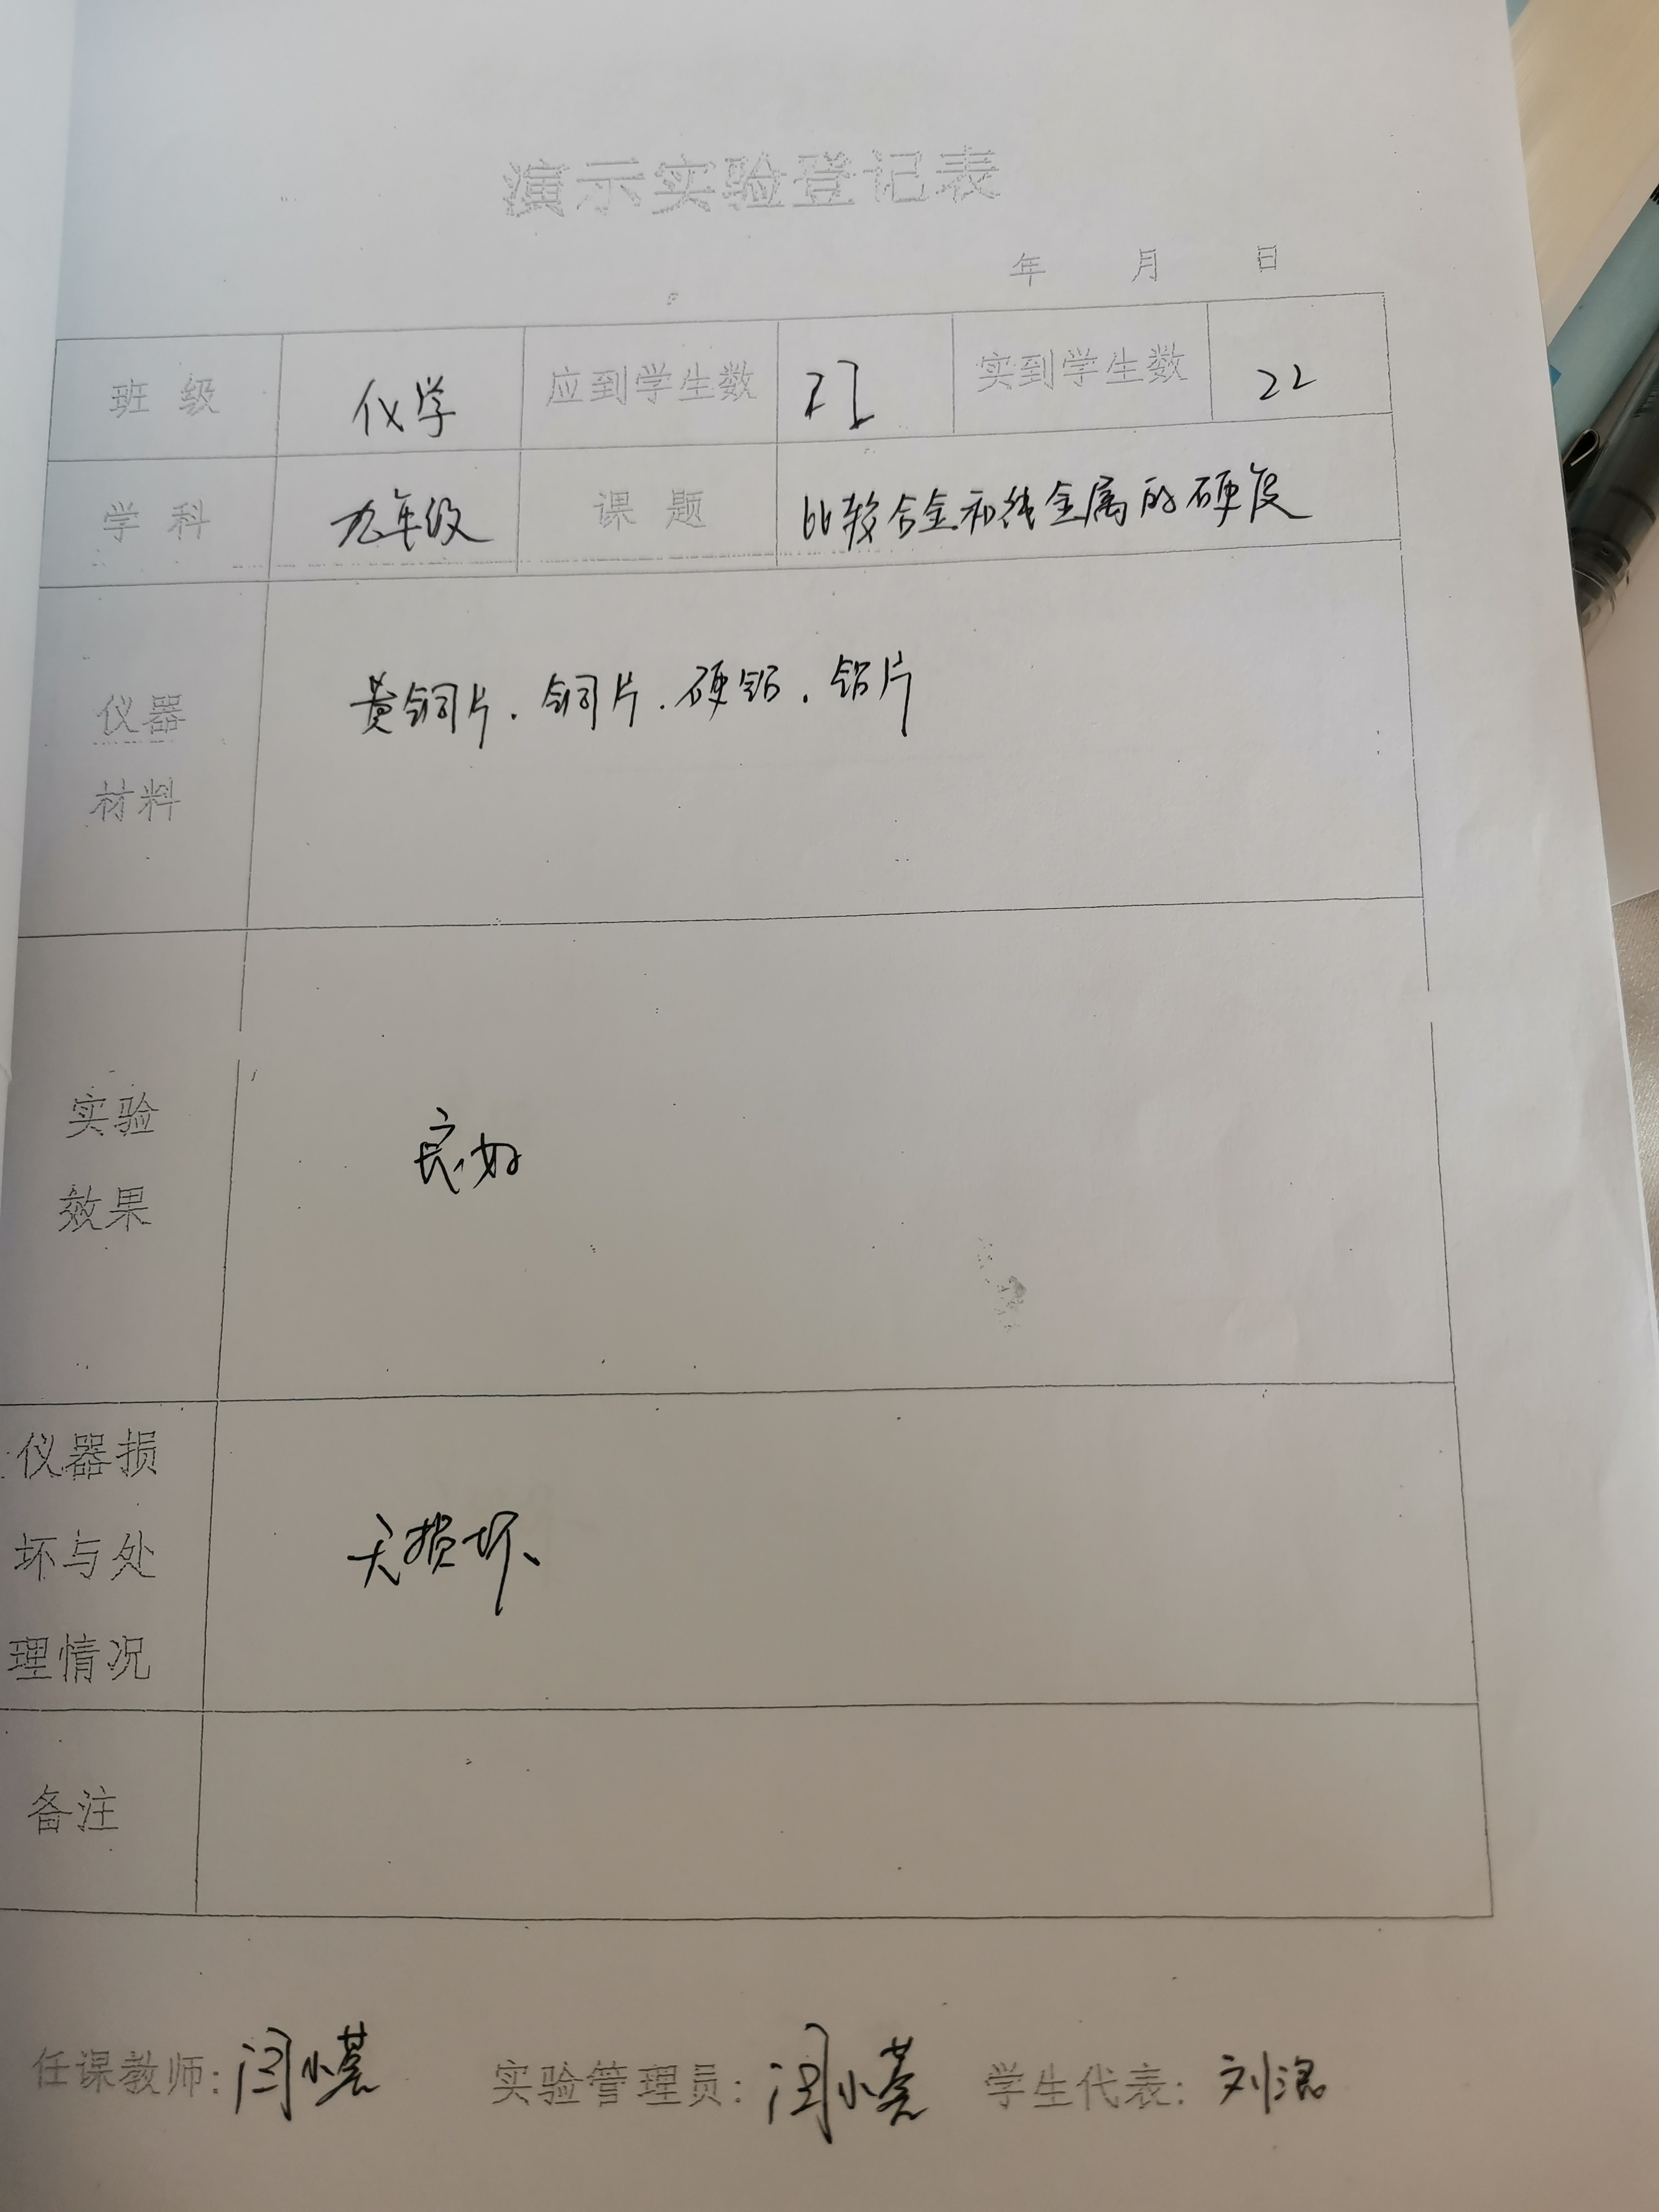 演示实验登记表
年 月 日
班 级 化学 应到学生数 22 实到学生数 22
学 科 九年级 课 题 比较合金和纯金属的硬度
仪器
材料
黄铜片.铜片.硬铝.铝片
实验
效果
良好
仪器损
坏与处
理情况
无损坏
备注
任课教师: 闫小 实验管理员: 闫小 学生代表: 刘